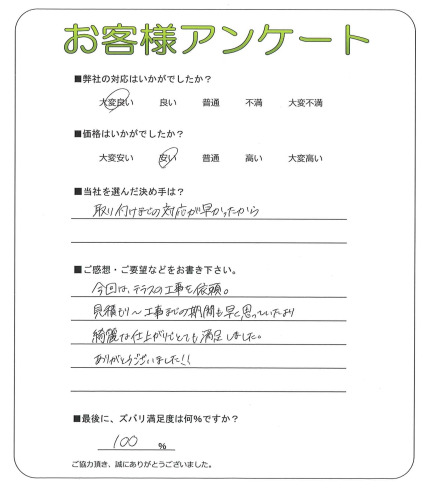 お客様アンケート
■弊社の対応はいかがでしたか？
大変良い 良い 普通 不満 大変不満
■価格はいかがでしたか？
大変安い 安い 普通 高い 大変高い
■当社を選んだ決め手は？
取り付けまでの対応が早かったから
■ご感想・ご要望などをお書き下さい。
今回は、テラスの工事を依頼。
見積もり〜工事までの期間も早く思っていたより
綺麗な仕上がりでとても満足しました。
ありがとうございました!!
■最後に、ズバリ満足度は何%ですか？
100 %
ご協力頂き、誠にありがとうございました。